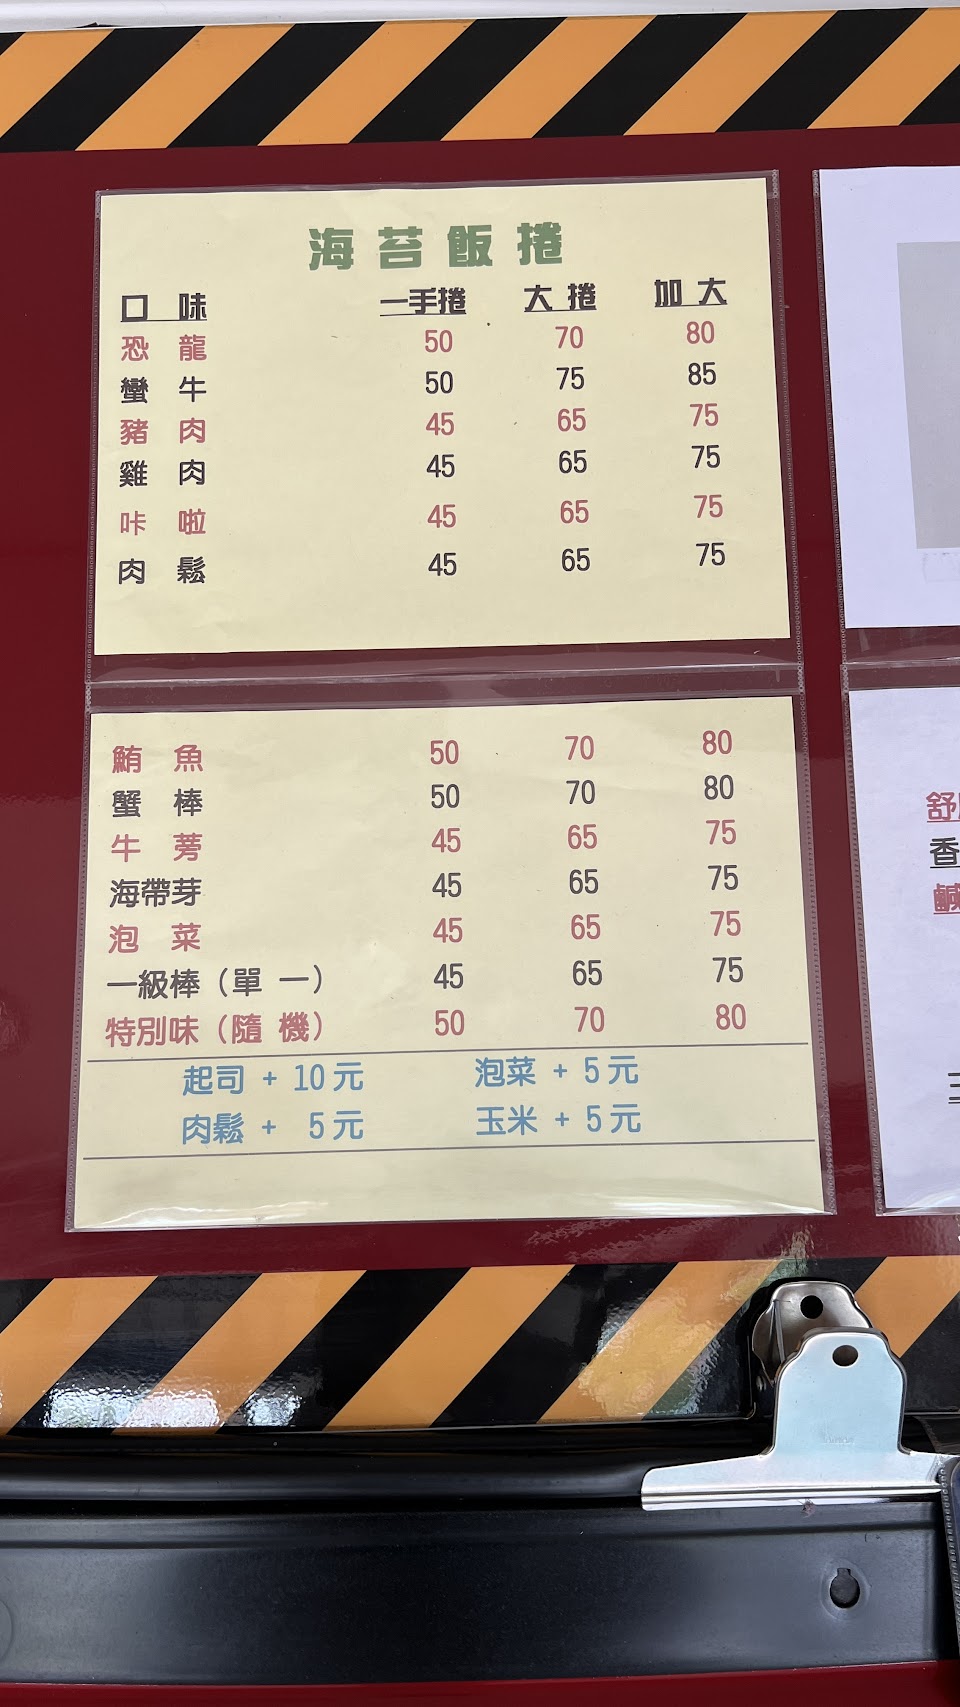 海苔飯捲
口味 一手捲 大捲 加大
恐龍 50 70 80
蠻牛 50 75 85
豬肉 45 65 75
雞肉 45 65 75
咔啦 45 65 75
肉鬆 45 65 75
鮪魚 50 70 80
蟹棒 50 70 80
牛蒡 45 65 75
海帶芽 45 65 75
泡菜 45 65 75
一級棒（單一） 45 65 75
特別味（隨機） 50 70 80
起司 + 10元 泡菜 + 5元
肉鬆 + 5元 玉米 + 5元
香